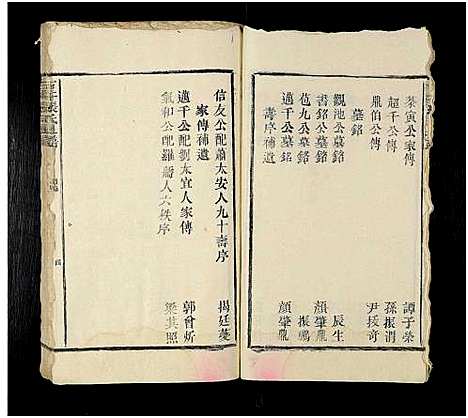 蔡寅公家傳 譚子榮
超千公家傳 孫振渭
胤伯公傳 尹
墓銘
觀池公墓銘 辰生
書銘公墓銘 顏肇
苞九公墓銘 振鵬
邁千公墓銘 顏肇
壽序補遺
信友公配蕭太安人九十壽序 揭廷蔓
家傳補遺
邁千公配劉太宜人家傳 郭曾炘
氣和公配羅孺人六秩序 梁其照
四